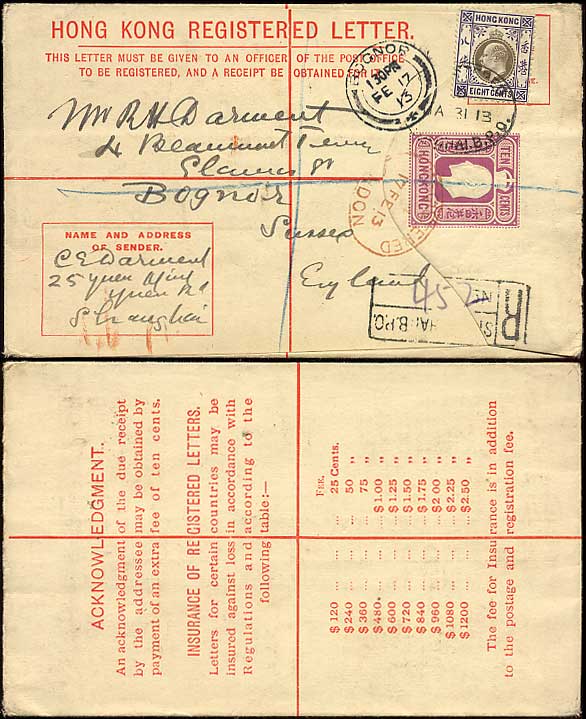 HONG KONG REGISTERED LETTER.
THIS LETTER MUST BE GIVEN TO AN OFFICER OF THE POST OFFICE
TO BE REGISTERED, AND A RECEIPT BE OBTAINED FOR IT.
HONG KONG
香港
八
EIGHT CENTS
BOGNOR
1 30 PM
FE 17
13
A 31 13
HAI.B.P.O.
HONG KONG
TEN CENTS
Mr R H Darment
4 Beaumont Terr
Bognor
Sussex
England
17 FE 13
NAME AND ADDRESS
OF SENDER.
C E Darment
25 Yuen Ming
Yuen Rd
Shanghai
R
452
HAI.B.P.O.
ACKNOWLEDGMENT.
An acknowledgment of the due receipt
by the addressee may be obtained by
payment of an extra fee of ten cents.
INSURANCE OF REGISTERED LETTERS.
Letters for certain countries may be
insured against loss in accordance with
Regulations and according to the
following table:—
FEE.
$ 120 ... ... 25 Cents.
$ 240 ... ... 50 "
$ 360 ... ... 75 "
$ 480 ... ... $ 1.00 "
$ 600 ... ... $ 1.25 "
$ 720 ... ... $ 1.50 "
$ 840 ... ... $ 1.75 "
$ 960 ... ... $ 2.00 "
$ 1080 ... ... $ 2.25 "
$ 1200 ... ... $ 2.50 "
The fee for Insurance is in addition
to the postage and registration fee.